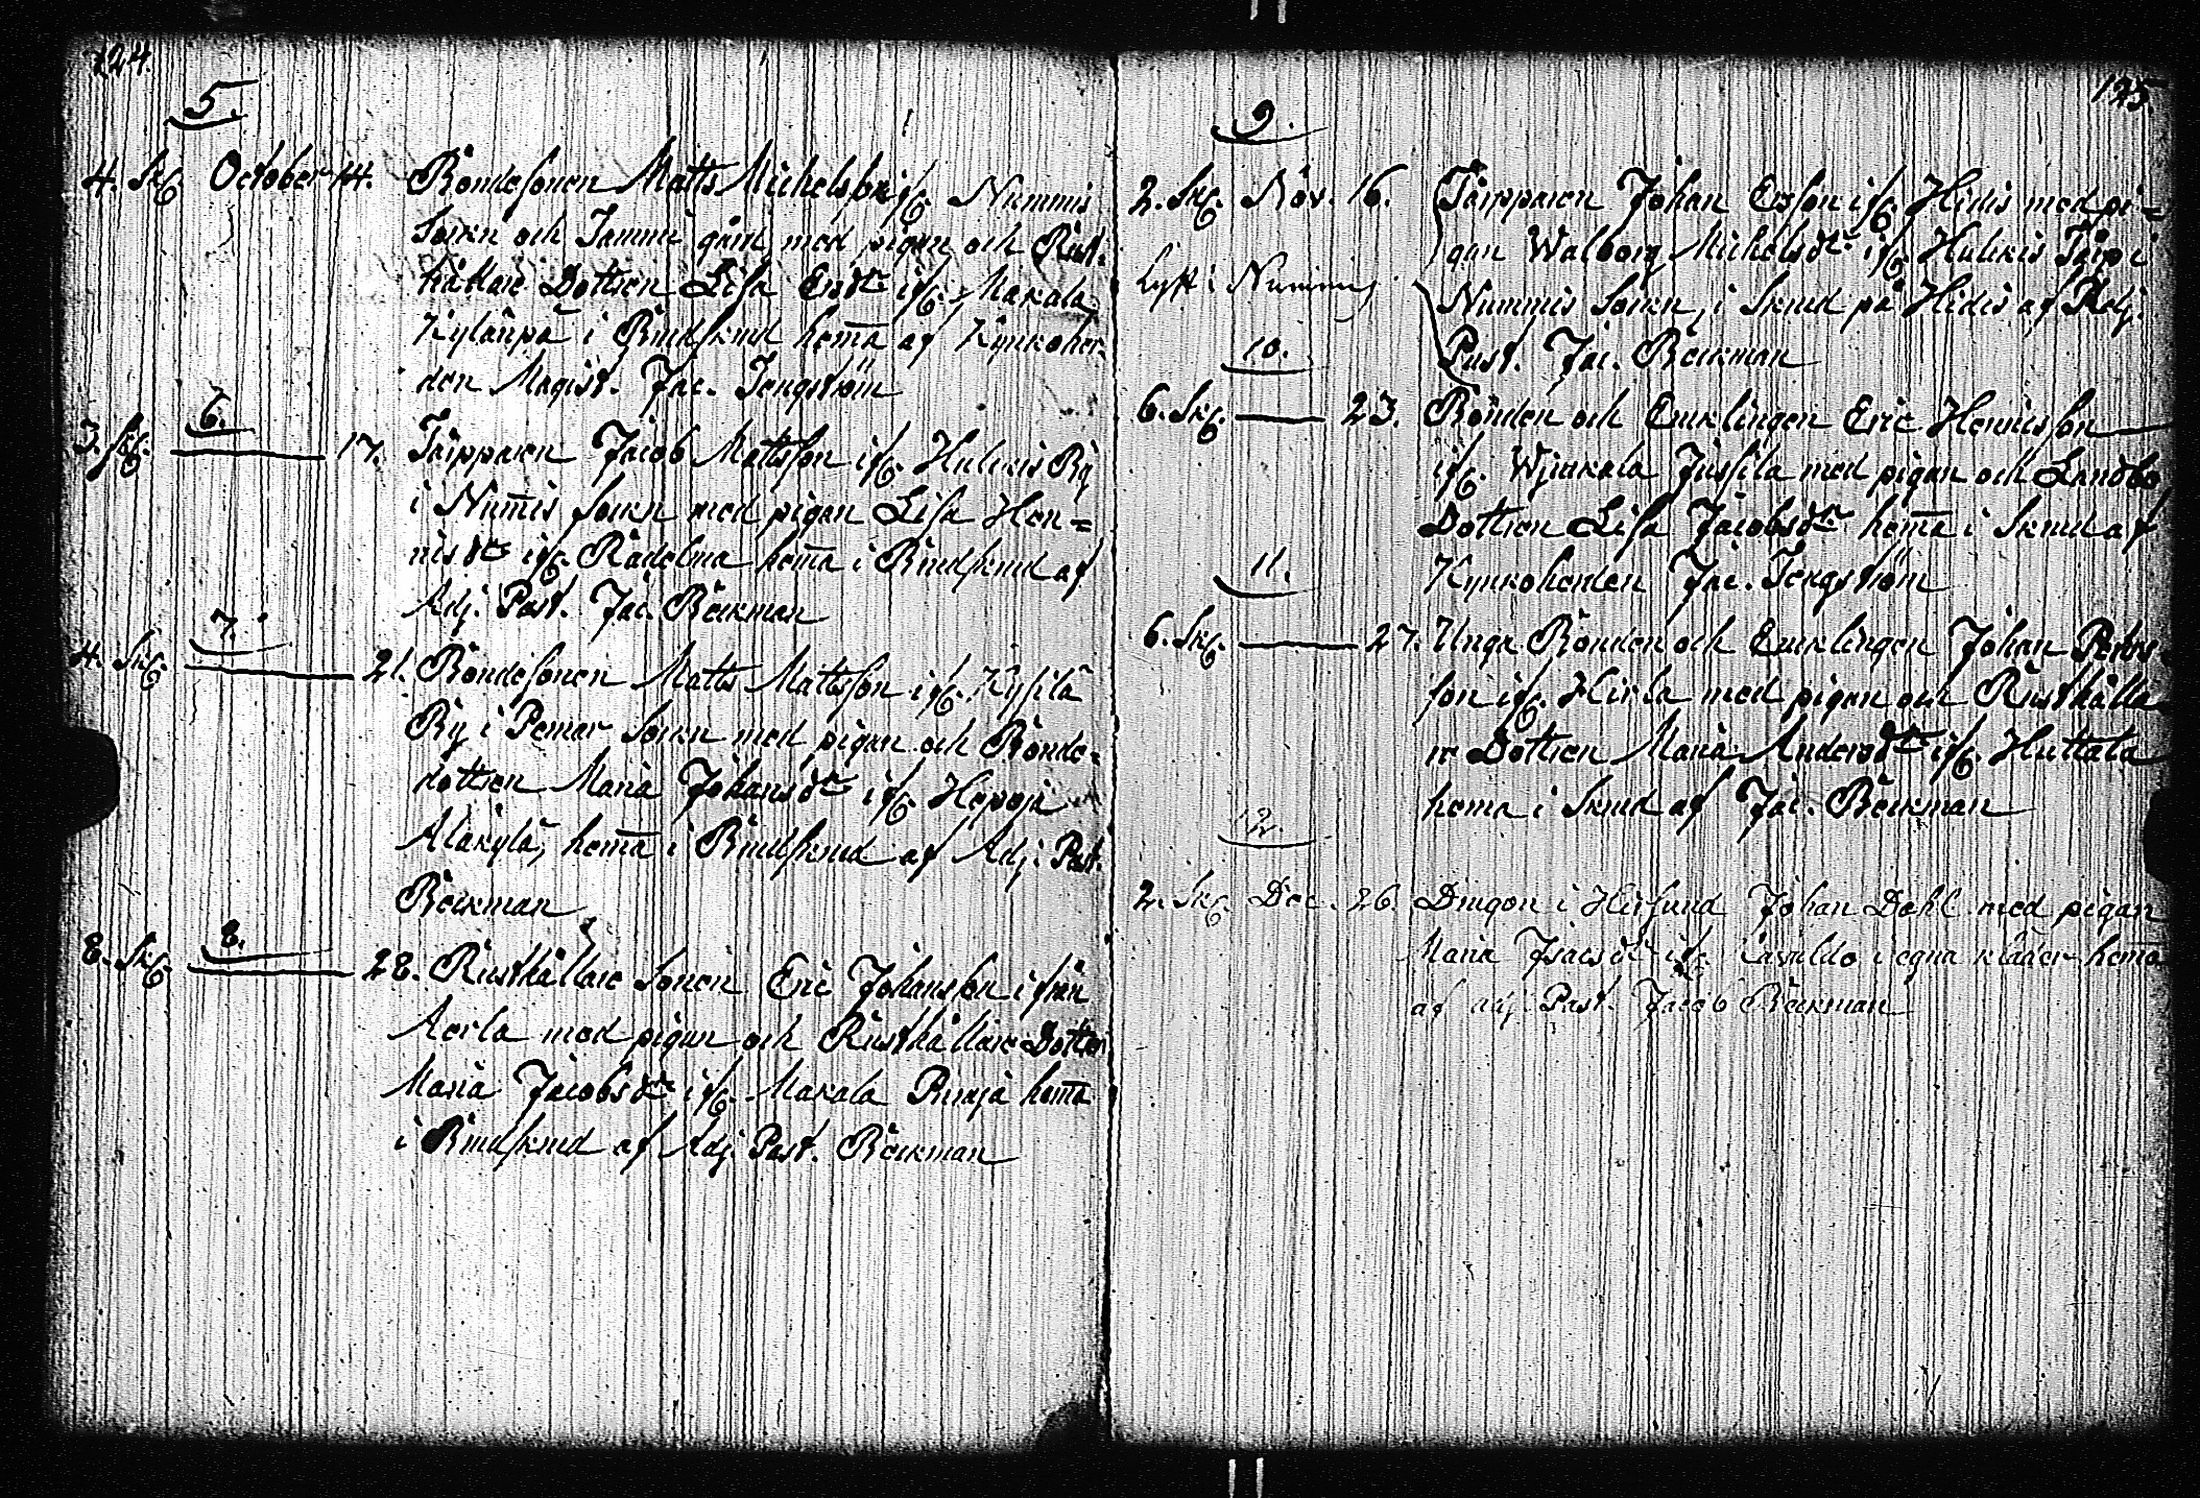 124.
5.
4. Sk. October 14. Bondesonen Matts Michelsson ifr. Nummis
Sokn och Tammi gård med pigan och Rust-
hållare Dottren Lisa Ersdr ifr. Makala
Kylänpä i Brudskrud hema af Kyrkoher-
den Magist. Jac. Tengström
6.
3. Sk. 17. Torpparen Jacob Mattsson ifr. Hulckis By
i Numis sokn med pigan Lisa Hen=
risdr ifr. Rädelma hema i Brudskrud af
Adj. Past. Jac. Böckman
7.
4. Sk. 21. Bondesonen Matts Mattsson ifr. Kysilä
By i Pemar Sokn med pigan och Bonde-
dottren Maria Johansdr ifr. Hepojo
Alakylä, hema i Brudskrud af Adj. Past.
Böckman
8.
8. Sk. 28. Rusthållare Sonen Eric Johansson ifrån
Aerla med pigan och Rusthållare Dotter
Maria Jacobsdr ifr. Makala Runja hema
i Brudskrud af Adj. Past. Böckman
125
9.
2. Sk. Nov. 16. Torpparen Johan Ersson ifr. Hidis med pi=
gan Walborg Michelsdr ifr. Hulckis Torp i
Lyst i Nummis
Nummis Sokn, i Skrud på Hidis af Adj.
Past. Jac. Böckman
10.
6. Sk. 23. Bonden och Encklingen Eric Henricsson
ifr. Wjinkala Jussila med pigan och Landbo
Dottren Lisa Jacobsdr hema i Skrud af
Kyrkoherden Jac. Tengström
11.
6. Sk. 27. Unga Bonden och Encklingen Johan Pehrs-
son ifr. Hirla med pigan och Rusthålla-
re Dottren Maria Andersdr ifr. Huttala
hema i Skrud af Jac. Böckman
12.
2. Sk. Dec. 26. Dragon i Hirsund Johan Dahl med pigan
Maria Isacsdr ifr. i egna kläder hema
af adj. Past. Jacob Böckman